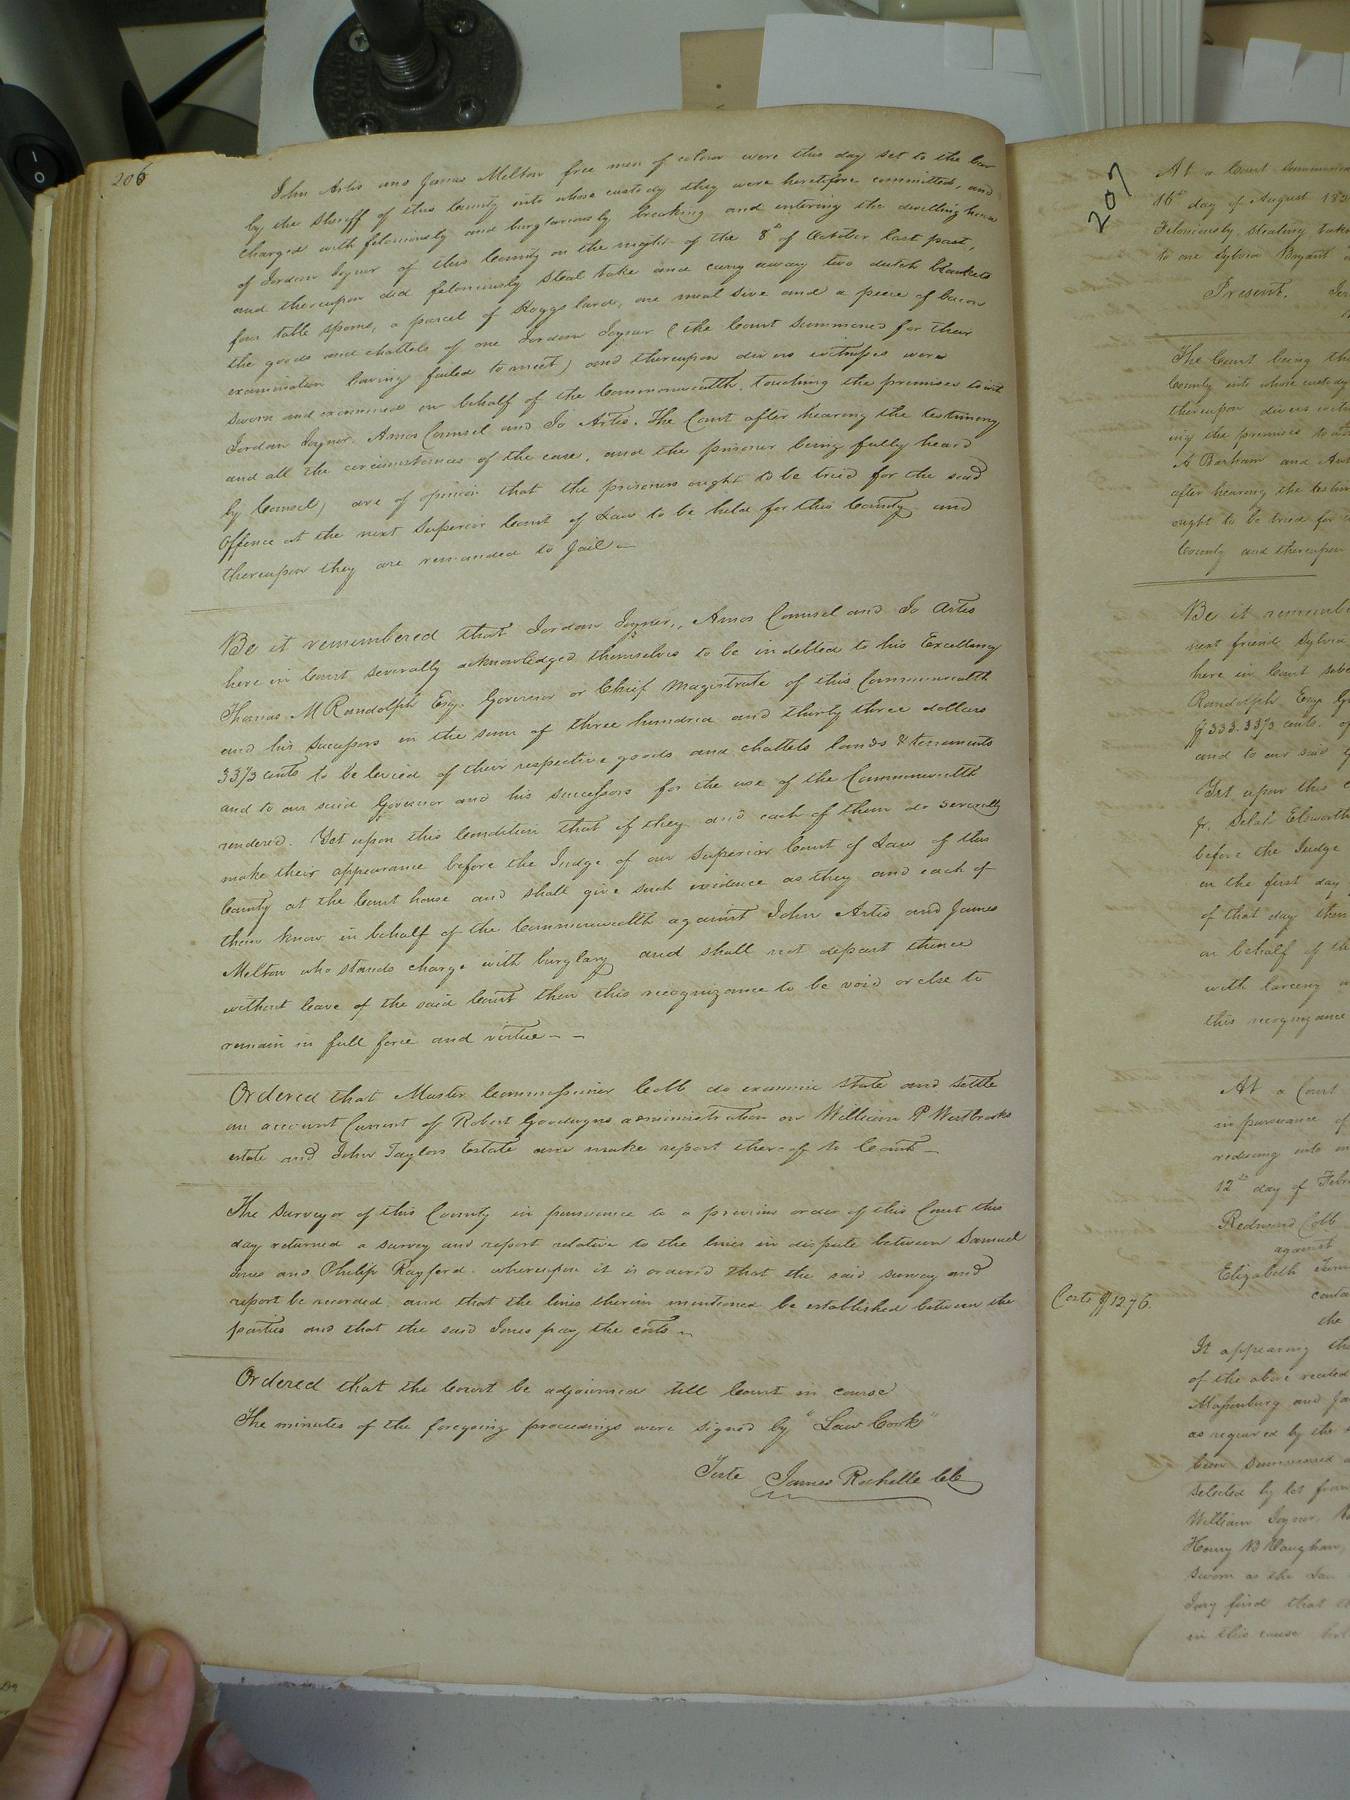 206
John Artis and James Melton free men of colour were this day set to the bar
by the Sheriff of this County into whose custody they were heretofore committed, and
charged with feloniously and burglariously breaking and entering the dwelling house
of Jordan Joyner of this County on the night of the 8th of October last past,
and thereupon did feloniously steal take and carry away two dutch blankets
four table spoons, a parcel of Hoggs lard, one meal sive and a piece of bacon
the goods and chattels of one Jordan Joyner (the Court summoned for their
examination having failed to meet) and thereupon divers witnesses were
sworn and examined on behalf of the Commonwealth, touching the premises to wit
Jordan Joyner, Amos Counsel and Jo Artis. The Court after hearing the testimony
and all the circumstances of the case, and the prisoner being fully heard
by Counsel, are of opinion that the prisoners ought to be tried for the said
Offence at the next Superior Court of Law to be held for this County and
thereupon they are remanded to Jail
Be it remembered that Jordan Joyner, Amos Counsel and Jo Artis
here in Court severally acknowledged themselves to be indebted to his Excellency
Thomas M Randolph Esq. Governor or Chief Magistrate of this Commonwealth
and his successors in the sum of three hundred and thirty three dollars
33 1/3 cents to be levied of their respective goods and chattels lands & tenements
and to our said Governor and his successors for the use of the Commonwealth
rendered. Yet upon this Condition that if they and each of them do severally
make their appearance before the Judge of our Superior Court of Law of this
County at the Court house and shall give such evidence as they and each of
them know in behalf of the Commonwealth against John Artis and James
Melton who stands charge with burglary and shall not depart thence
without leave of the said Court then this recognizance to be void or else to
remain in full force and virtue
Ordered that Master Commissioner Cobb do examine state and settle
an account Current of Robert Goodwyns administration on William P Westbrooks
estate and John Taylors Estate and make report thereof to Court
The Surveyor of this County in pursuance to a previous order of this Court this
day returned a survey and report relative to the lines in dispute between Samuel
Jones and Philip Rayford. whereupon it is ordered that the said survey and
report be recorded and that the lines therein mentioned be established between the
parties and that the said Jones pay the costs
Ordered that the Court be adjourned till Court in course
The minutes of the foregoing proceedings were signed by "Law Cook"
Teste James Rochelle Clk
207
At a Court
16th day of August 18
Feloniously stealing
to one Sylvia Bryant
Present.
The Court being
County into whose custody
thereupon divers
ing the premises to
A Barham and
after hearing the
ought to be tried for
County and thereupon
Be it
next friend Sylvia
here in Court
Randolph Esq
$333.33 1/3 cents.
and to our said
Yet upon this
before the Judge
on the first day
of that day
on behalf of the
with larceny
this recognizance
At a Court
in pursuance of
12th day of
Cobb
against
Elizabeth
Costs $12.76.
the
It appearing
of the above recited
Massenburg and
as required by the
been summoned
selected by lot from
William Joyner,
Henry B Vaughan,
sworn as the
Jury find that
in this cause